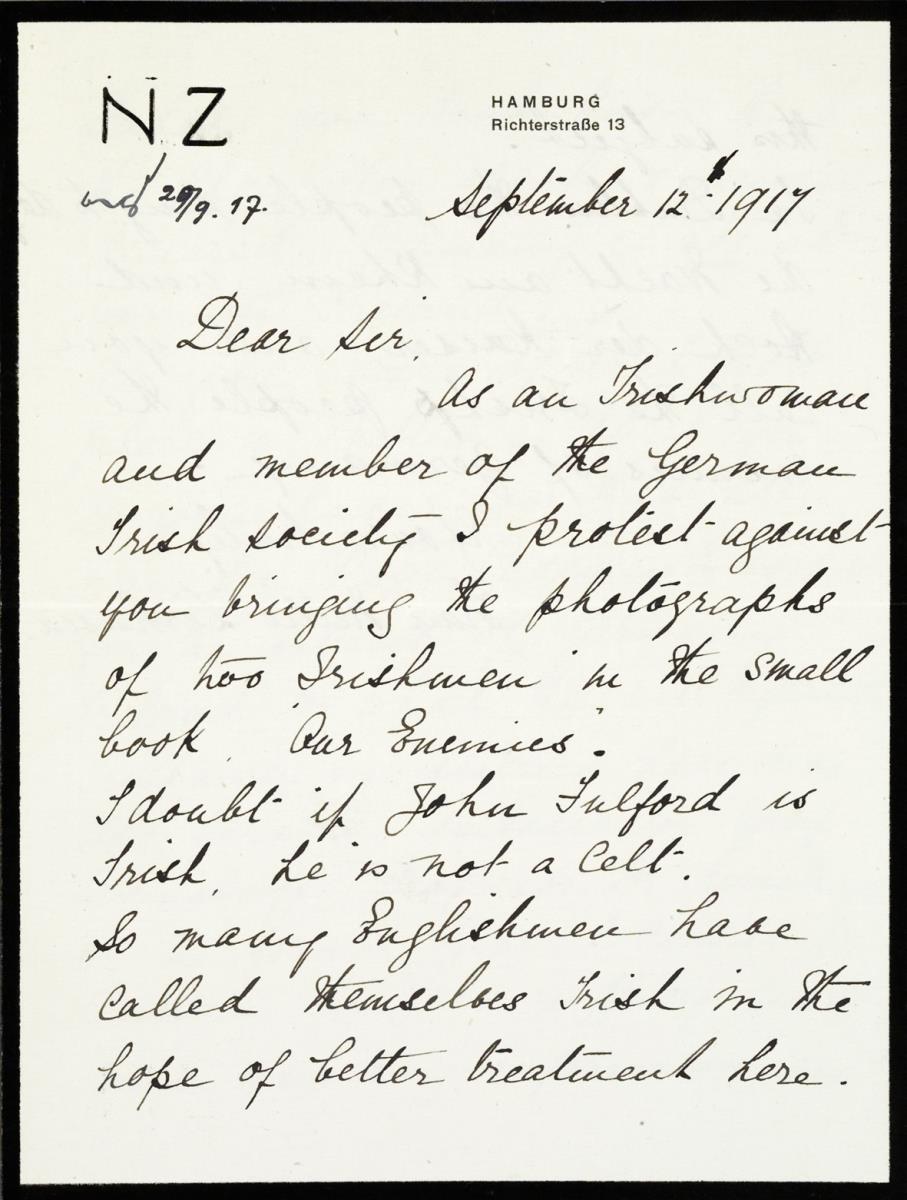 NZ
HAMBURG
Richterstraße 13
20/9. 17.
September 12th 1917
Dear Sir,
As an Irishwoman
and member of the German
Irish Society I protest against
you bringing the photographs
of two Irishmen in the small
book, "Our Enemies".
I doubt if John Fulford is
Irish, he is not a Celt.
So many Englishmen have
called themselves Irish in the
hope of better treatment here.